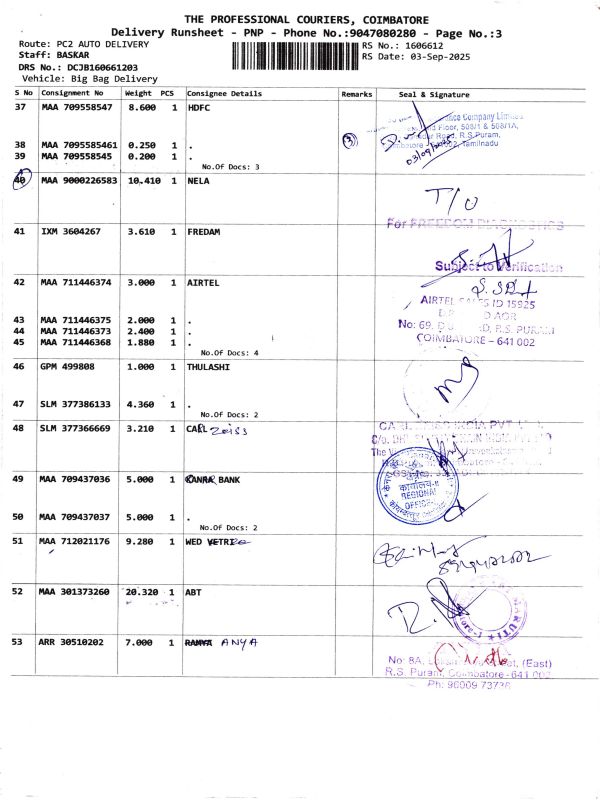 THE PROFESSIONAL COURIERS, COIMBATORE
Delivery Runsheet - PNP - Phone No.:9047080280 - Page No.:3
Route: PC2 AUTO DELIVERY
RS No.: 1606612
Staff: BASKAR
RS Date: 03-Sep-2025
DRS No.: DCJB160661203
Vehicle: Big Bag Delivery
S No Consignment No Weight PCS Consignee Details Remarks Seal & Signature
37 MAA 709558547 8.600 1 HDFC
Company Limited
Floor, 508/1 & 508/1A,
Road, R.S.Puram,
Tamilnadu
03/09/2025
38 MAA 7095585461 0.250 1 .
3
39 MAA 709558545 0.200 1 .
No.Of Docs: 3
40 MAA 9000226583 10.410 1 NELA
T/O
For FREEDOM DIAGNOSTICS
41 IXM 3604267 3.610 1 FREDAM
Subject to Verification
42 MAA 711446374 3.000 1 AIRTEL
AIRTEL SALES ID 15925
43 MAA 711446375 2.000 1 .
No: 69, R.S. PURAM
44 MAA 711446373 2.400 1 .
45 MAA 711446368 1.880 1 .
COIMBATORE - 641 002
No.Of Docs: 4
46 GPM 499808 1.000 1 THULASHI
47 SLM 377386133 4.360 1 .
No.Of Docs: 2
48 SLM 377366669 3.210 1 CARL Zeiss
CARL ZEISS INDIA PVT
C/o.
49 MAA 709437036 5.000 1 CANRA BANK
REGIONAL
OFFICE
50 MAA 709437037 5.000 1 .
No.Of Docs: 2
51 MAA 712021176 9.280 1 WED VETRI
52 MAA 301373260 20.320 1 ABT
MARUTI
53 ARR 30510202 7.000 1 RAMYA ANYA
No: 8A, Street, (East)
R.S. Puram, Coimbatore - 641 002
Ph: 90909 73738